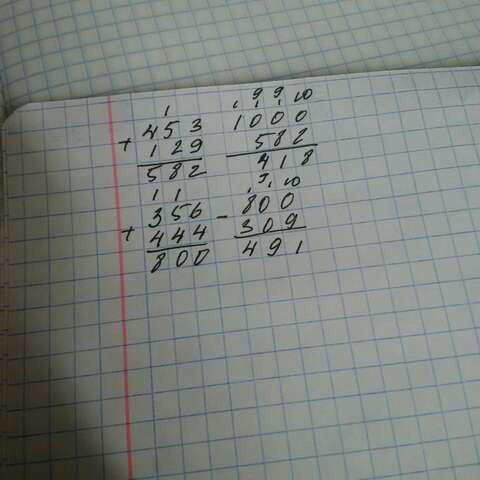 1 , 9 9 10
+ 453 1000
129 582
582 418
11 , 9 , 10
+ 356 - 800
444 309
800 491